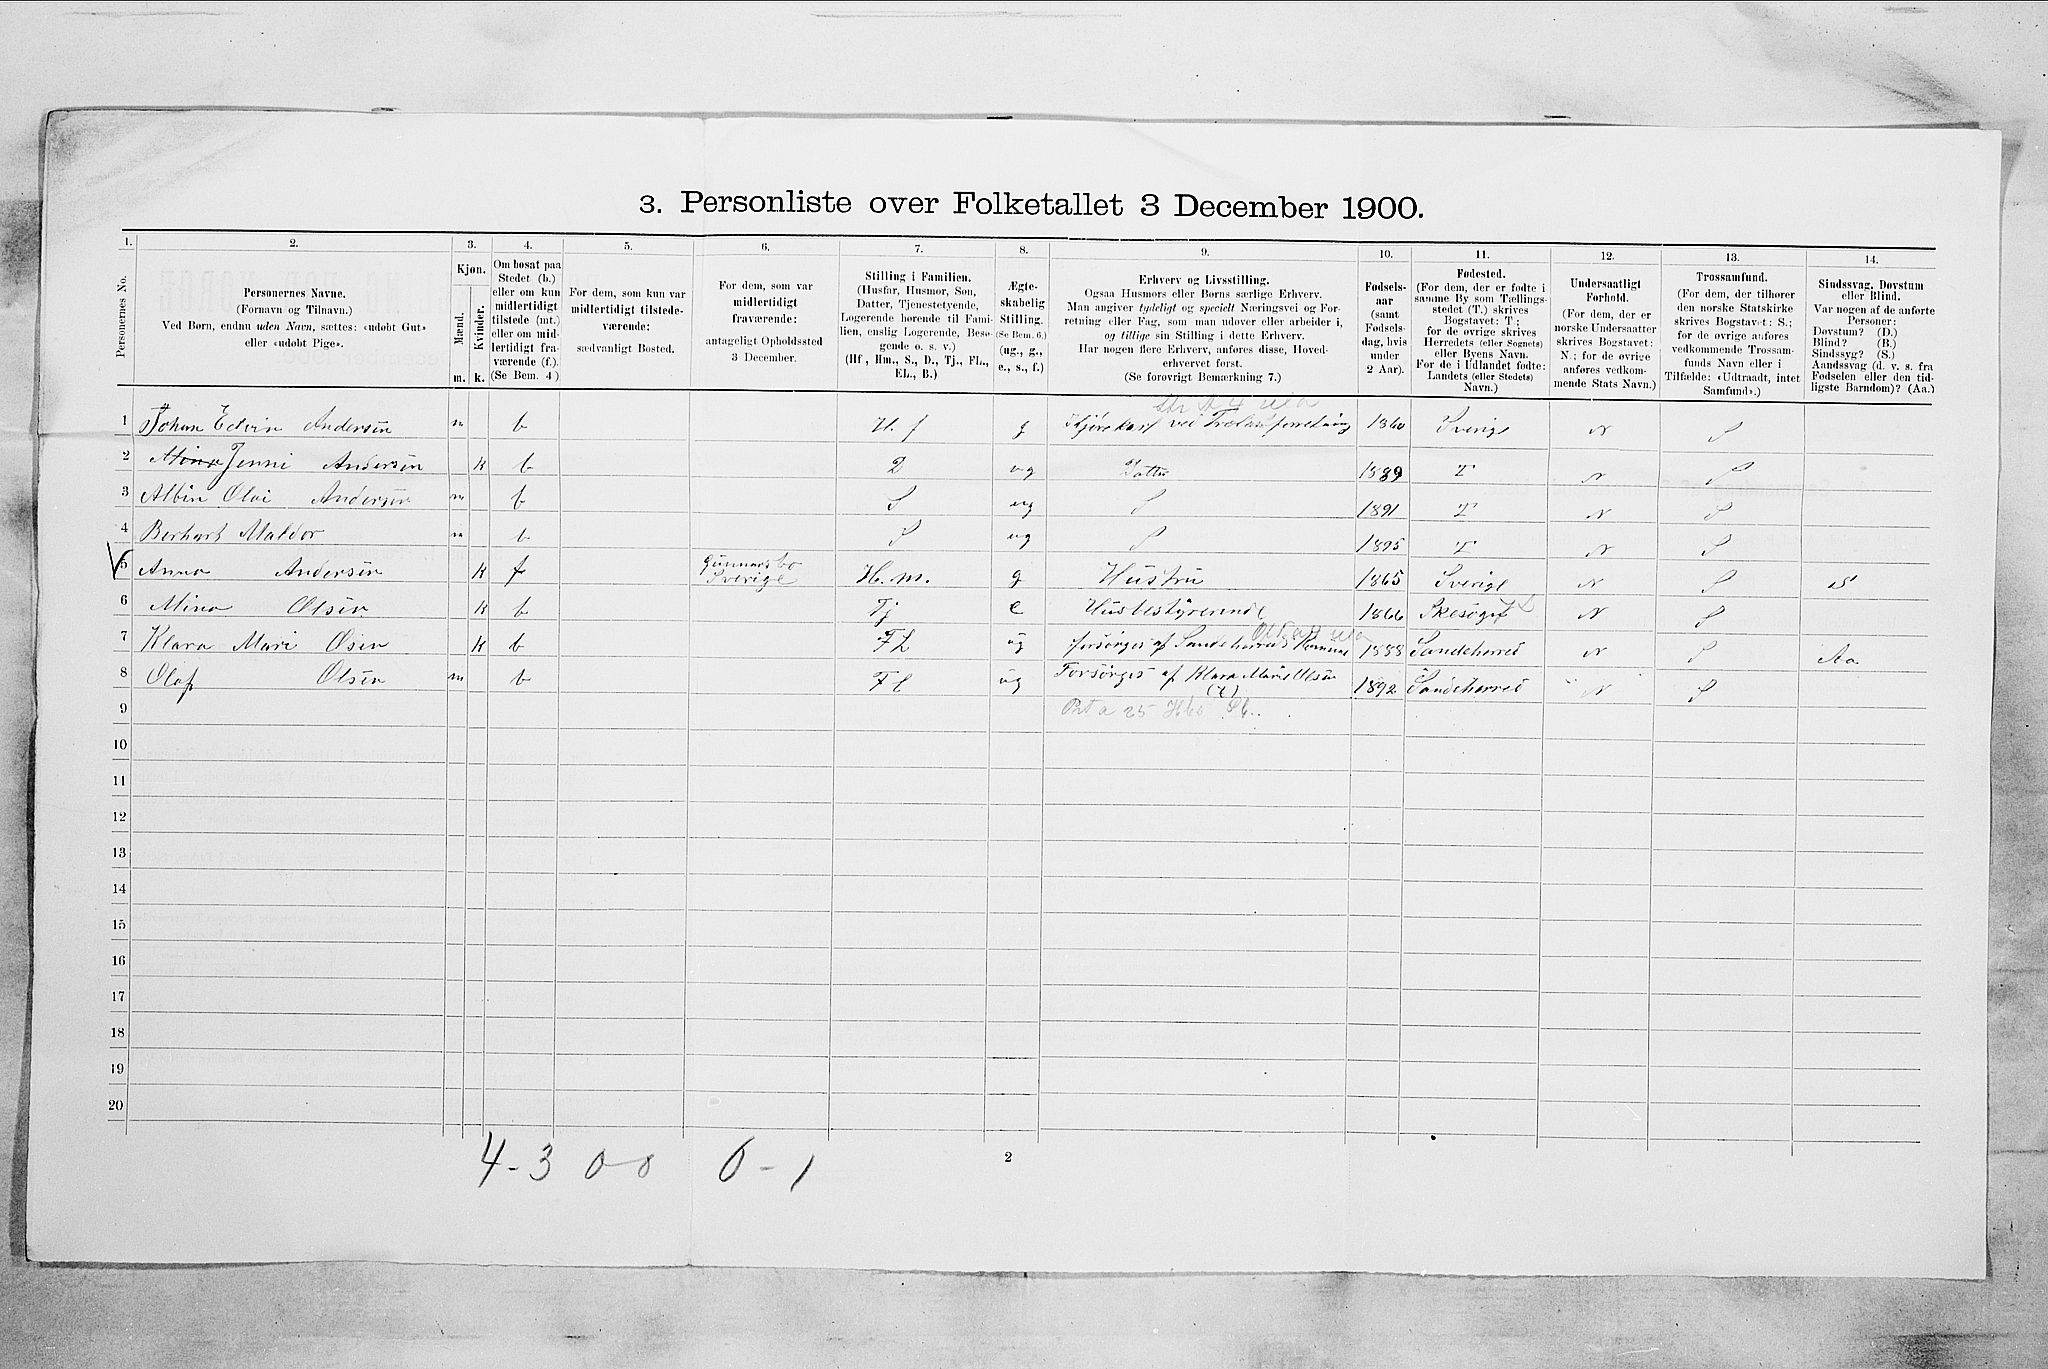 3. Personliste over Folketallet 3 December 1900.
1. 2. 3. 4. 5. 6. 7. 8. 9. 10. 11. 12. 13. 14.
Personernes No.
Personernes Navne.
(Fornavn og Tilnavn.)
Ved Børn, endnu uden Navn, sættes: «udøbt Gut»
eller «udøbt Pige».
Kjøn.
Mænd.
Kvinder.
m. k.
Om bosat paa
Stedet (b.)
eller om kun
midlertidigt
tilstede (mt.)
eller om mid-
lertidigt fra-
værende (f.).
(Se Bem. 4.)
For dem, som kun var
midlertidigt tilstede-
værende:
sædvanligt Bosted.
For dem, som var
midlertidigt
fraværende:
antageligt Opholdssted
3 December.
Stilling i Familien.
(Husfar, Husmor, Søn,
Datter, Tjenestetyende,
Logerende hørende til Fami-
lien, enslig Logerende, Besø-
gende o. s. v.)
(Hf, Hm., S., D., Tj., FL.,
EL., B.)
Ægte-
skabelig
Stilling.
(Se Bem. 6.)
(ug., g.,
e., s., f.)
Erhverv og Livsstilling.
Ogsaa Husmors eller Børns særlige Erhverv.
Man angiver tydeligt og specielt Næringsvei og For-
retning eller Fag, som man udøver eller arbeider i,
og tillige sin Stilling i dette Erhverv.
Har nogen flere Erhverv, anføres disse, Hoved-
erhvervet først.
(Se forøvrigt Bemærkning 7.)
Fødsels-
aar
(samt
Fødsels-
dag, hvis
under
2 Aar).
Fødested.
(For dem, der er fødte i
samme By som Tællings-
stedet (T.) skrives
Bogstavet: T;
for de øvrige skrives
Herredets (eller Sognets)
eller Byens Navn.
For de i Udlandet fødte:
Landets (eller Stedets)
Navn.)
Undersaatligt
Forhold.
(For dem, der er
norske Undersaatter
skrives Bogstavet:
N.; for de øvrige
anføres vedkom-
mende Stats Navn.)
Trossamfund.
(For dem, der tilhører
den norske Statskirke
skrives Bogstavet: S.;
for de øvrige anføres
vedkommende Trossam-
funds Navn eller i
Tilfælde: «Udtraadt, intet
Samfund».)
Sindssvag, Døvstum
eller Blind.
Var nogen af de anførte
Personer:
Døvstum? (D.)
Blind? (B.)
Sindssyg? (S.)
Aandssvag (d. v. s. fra
Fødselen eller den tid-
ligste Barndom)? (Aa.)
1 Johan Edvin Andersen m b H. f g Kjørekarl ved Trælastforretning 1860 Sverige N S
2 Mina Jenni Andersen k b D ug Datter 1889 T N S
3 Albin Olai Andersen m b S ug S 1891 T N S
4 Berhart Maldor m b S ug S 1895 T N S
5 Anna Andersen k f Gunnarsbo Sverige H. m. g Hustru 1865 Sverige N S S
6 Mina Olsen k b Tj e Husbestyrerinde 1866 N S
7 Klara Mari Olsen k b FL ug forsørges af Sandeherreds Komune 1888 Sandeherred N S Aa
8 Olaf Olsen m b FL ug Forsørges af Klara Marie Olsen (7) 1892 Sandeherred N S
9
10
11
12
13
14
15
16
17
18
19
20
4-3 0-0 0-1
2